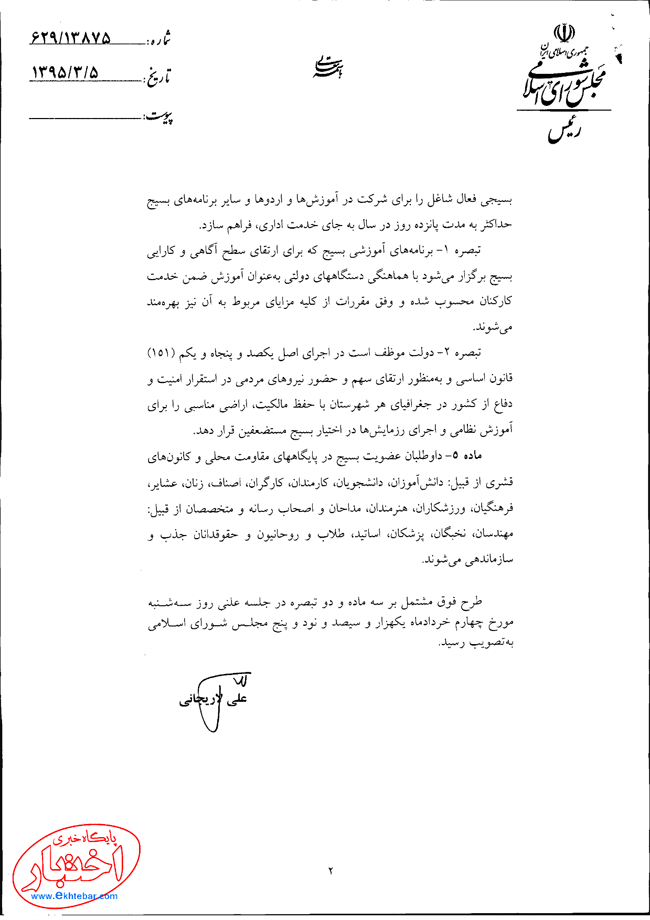 جمهوری اسلامی ایران
مجلس شورای اسلامی
رئیس
باسمه تعالی
شماره: ۶۲۹/۱۳۸۷۵
تاریخ: ۱۳۹۵/۳/۵
پیوست:
بسیجی فعال شاغل را برای شرکت در آموزش‌ها و اردوها و سایر برنامه‌های بسیج
حداکثر به مدت پانزده روز در سال به جای خدمت اداری، فراهم سازد.
تبصره ۱- برنامه‌های آموزشی بسیج که برای ارتقای سطح آگاهی و کارایی
بسیج برگزار می‌شود با هماهنگی دستگاههای دولتی به‌عنوان آموزش ضمن خدمت
کارکنان محسوب شده و وفق مقررات از کلیه مزایای مربوط به آن نیز بهره‌مند
می‌شوند.
تبصره ۲- دولت موظف است در اجرای اصل یکصد و پنجاه و یکم (۱۵۱)
قانون اساسی و به‌منظور ارتقای سهم و حضور نیروهای مردمی در استقرار امنیت و
دفاع از کشور در جغرافیای هر شهرستان با حفظ مالکیت، اراضی مناسبی را برای
آموزش نظامی و اجرای رزمایش‌ها در اختیار بسیج مستضعفین قرار دهد.
ماده ۵- داوطلبان عضویت بسیج در پایگاههای مقاومت محلی و کانون‌های
قشری از قبیل: دانش‌آموزان، دانشجویان، کارمندان، کارگران، اصناف، زنان، عشایر،
فرهنگیان، ورزشکاران، هنرمندان، مداحان و اصحاب رسانه و متخصصان از قبیل:
مهندسان، نخبگان، پزشکان، اساتید، طلاب و روحانیون و حقوقدانان جذب و
سازماندهی می‌شوند.
طرح فوق مشتمل بر سه ماده و دو تبصره در جلسه علنی روز سه‌شنبه
مورخ چهارم خردادماه یکهزار و سیصد و نود و پنج مجلس شورای اسلامی
به‌تصویب رسید.
علی لاریجانی
۲
پایگاه خبری
اختبار
www.ekhtebar.com